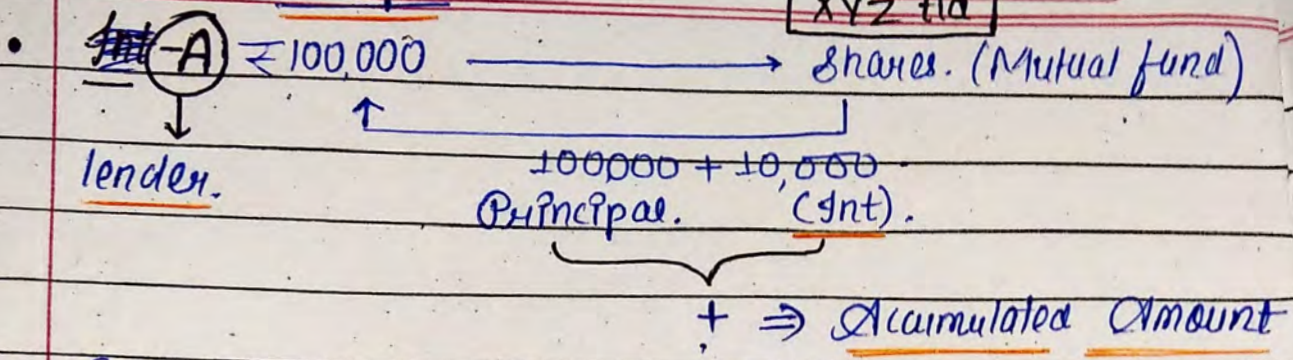 XYZ Ltd
• A ₹100,000 → Shares. (Mutual fund)
lender.
100000 + 10,000
Principal. (Int).
+ ⇒ Accumulated Amount